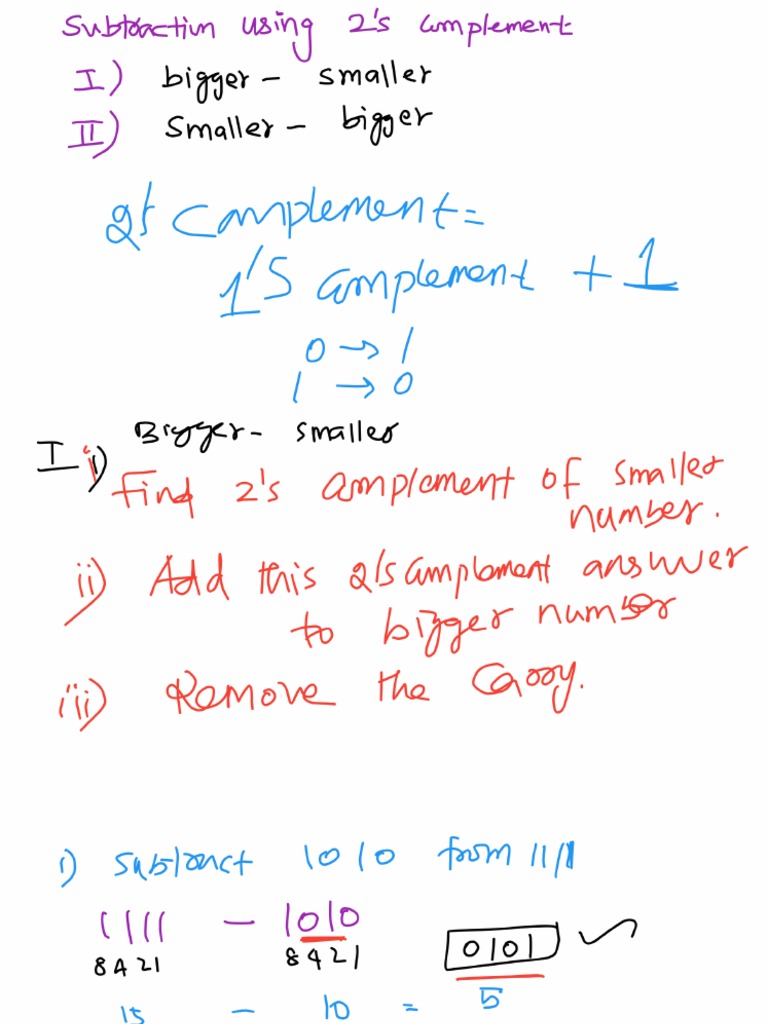 Subtraction using 2's complement
I) bigger - smaller
II) Smaller - bigger
2's complement =
1's complement + 1
0 → 1
1 → 0
I Bigger - smaller
i) Find 2's complement of smaller
number.
ii) Add this 2's complement answer
to bigger number
iii) Remove the Carry.
i) subtract 1010 from 1111
1111 - 1010 0101
8421 8421
15 - 10 = 5